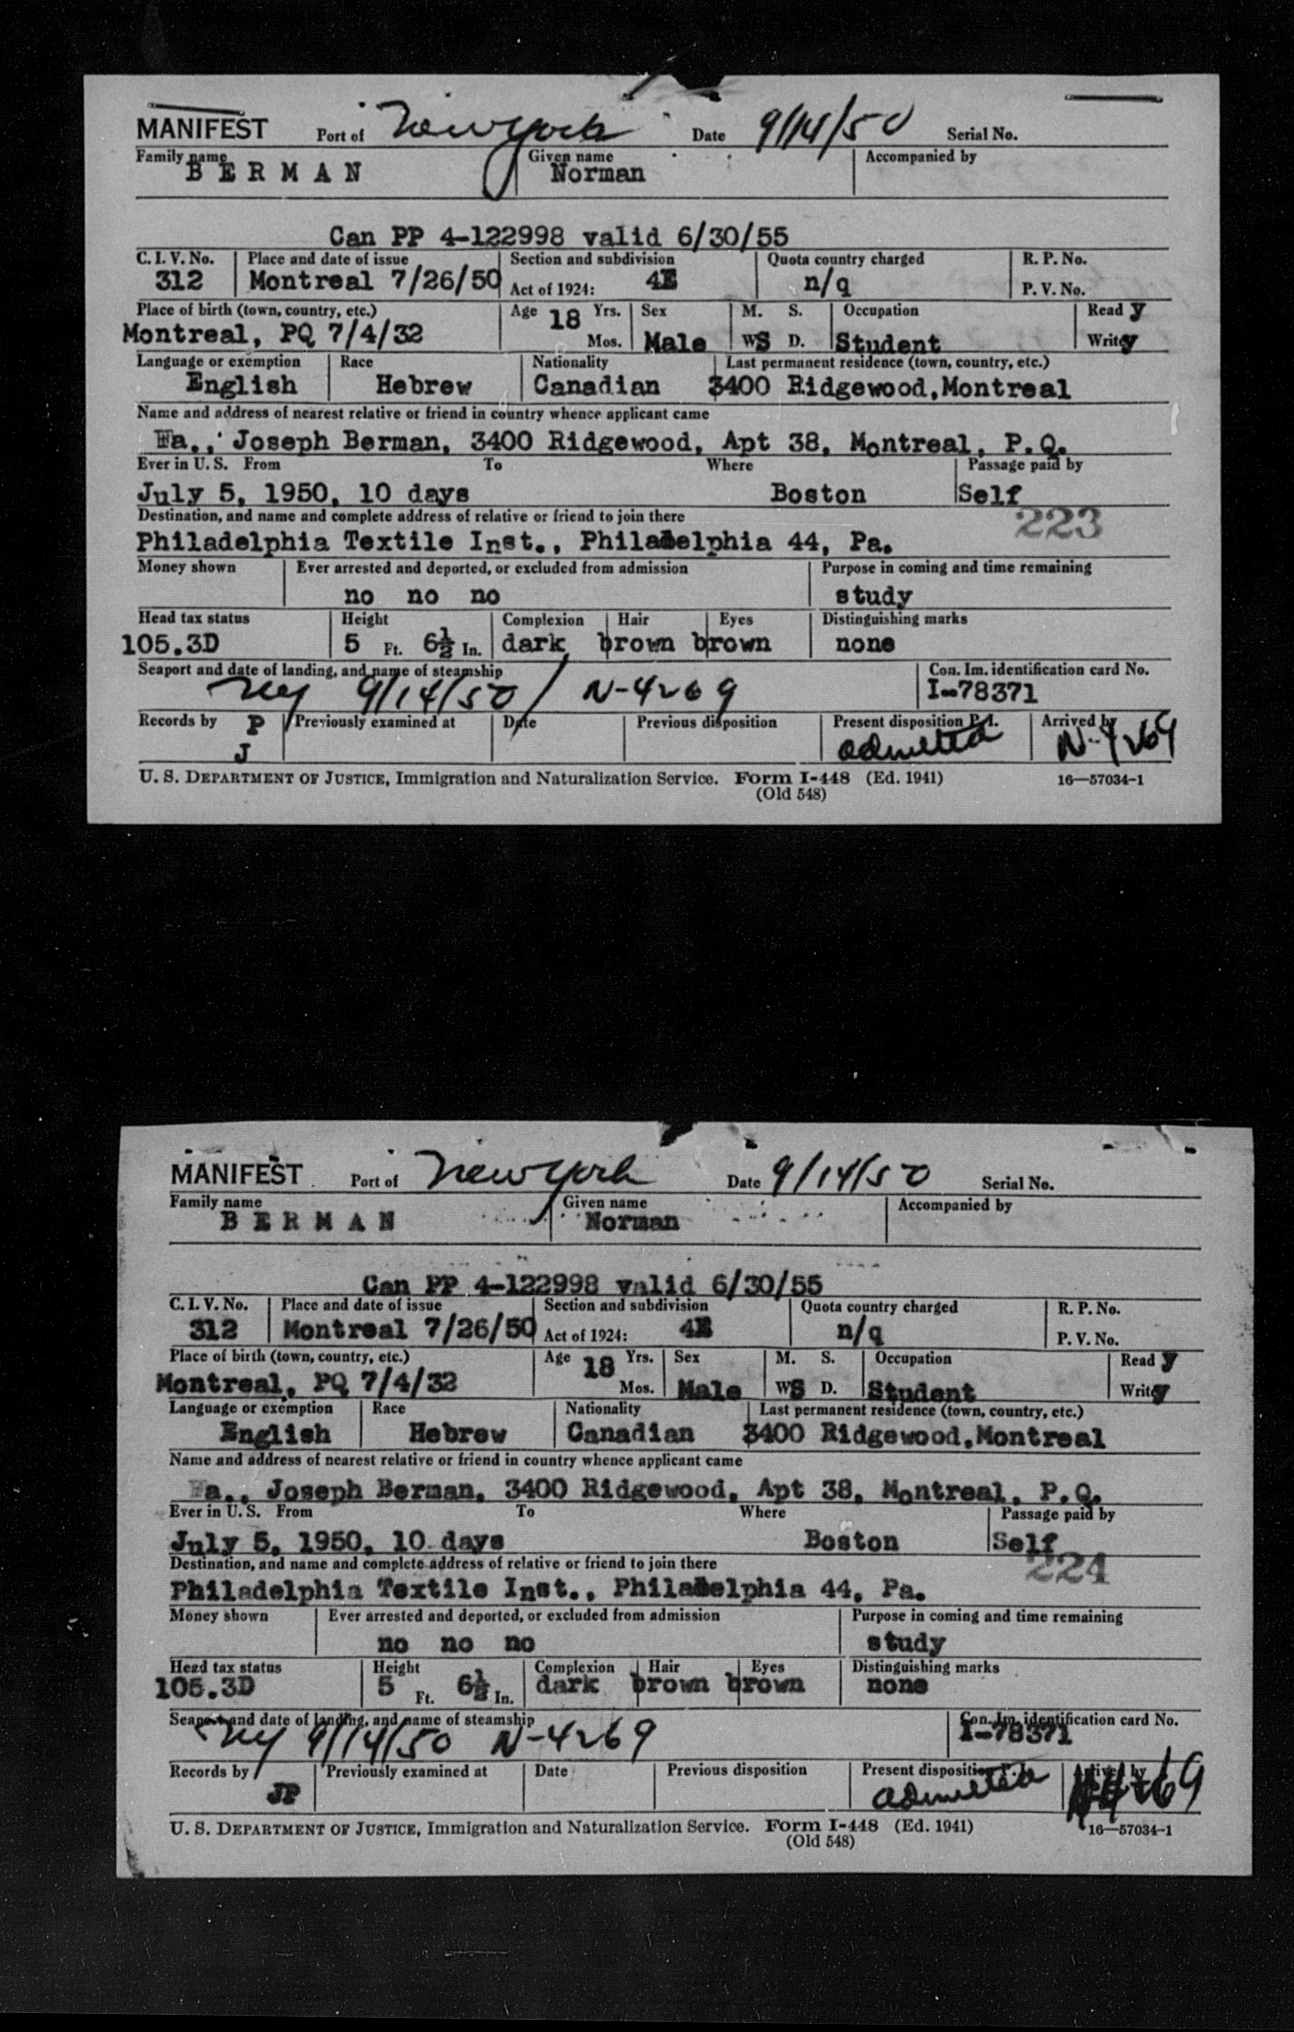 MANIFEST Port of New York Date 9/14/50 Serial No.
Family name Given name Accompanied by
BERMAN Norman
Can PP 4-122998 valid 6/30/55
C. I. V. No. Place and date of issue Section and subdivision Quota country charged R. P. No.
312 Montreal 7/26/50 Act of 1924: 4E n/q P. V. No.
Place of birth (town, country, etc.) Age 18 Yrs. Sex M. S. Occupation Read y
Montreal, PQ 7/4/32 Mos. Male WS D. Student Write y
Language or exemption Race Nationality Last permanent residence (town, country, etc.)
English Hebrew Canadian 3400 Ridgewood,Montreal
Name and address of nearest relative or friend in country whence applicant came
Fa., Joseph Berman, 3400 Ridgewood, Apt 38, Montreal, P.Q.
Ever in U. S. From To Where Passage paid by
July 5, 1950, 10 days Boston Self
Destination, and name and complete address of relative or friend to join there 223
Philadelphia Textile Inst., Philadelphia 44, Pa.
Money shown Ever arrested and deported, or excluded from admission Purpose in coming and time remaining
no no no study
Head tax status Height Complexion Hair Eyes Distinguishing marks
105.3D 5 Ft. 6½ In. dark brown brown none
Seaport and date of landing, and name of steamship Con. Im. identification card No.
NY 9/14/50 N-4269 I-78371
Records by P Previously examined at Date Previous disposition Present disposition P. I. Arrived by
J admitted N-4269
U. S. DEPARTMENT OF JUSTICE, Immigration and Naturalization Service. Form I-448 (Ed. 1941) 16—57034-1
(Old 548)
MANIFEST Port of New York Date 9/14/50 Serial No.
Family name Given name Accompanied by
BERMAN Norman
Can PP 4-122998 valid 6/30/55
C. I. V. No. Place and date of issue Section and subdivision Quota country charged R. P. No.
312 Montreal 7/26/50 Act of 1924: 4E n/q P. V. No.
Place of birth (town, country, etc.) Age 18 Yrs. Sex M. S. Occupation Read y
Montreal, PQ 7/4/32 Mos. Male WS D. Student Write y
Language or exemption Race Nationality Last permanent residence (town, country, etc.)
English Hebrew Canadian 3400 Ridgewood,Montreal
Name and address of nearest relative or friend in country whence applicant came
Fa., Joseph Berman, 3400 Ridgewood, Apt 38, Montreal, P.Q.
Ever in U. S. From To Where Passage paid by
July 5, 1950, 10 days Boston Self
Destination, and name and complete address of relative or friend to join there 224
Philadelphia Textile Inst., Philadelphia 44, Pa.
Money shown Ever arrested and deported, or excluded from admission Purpose in coming and time remaining
no no no study
Head tax status Height Complexion Hair Eyes Distinguishing marks
105.3D 5 Ft. 6½ In. dark brown brown none
Seaport and date of landing, and name of steamship Con. Im. identification card No.
NY 9/14/50 N-4269 I-78371
Records by Previously examined at Date Previous disposition Present disposition P. I. Arrived by
JP admitted N-4269
U. S. DEPARTMENT OF JUSTICE, Immigration and Naturalization Service. Form I-448 (Ed. 1941) 16—57034-1
(Old 548)